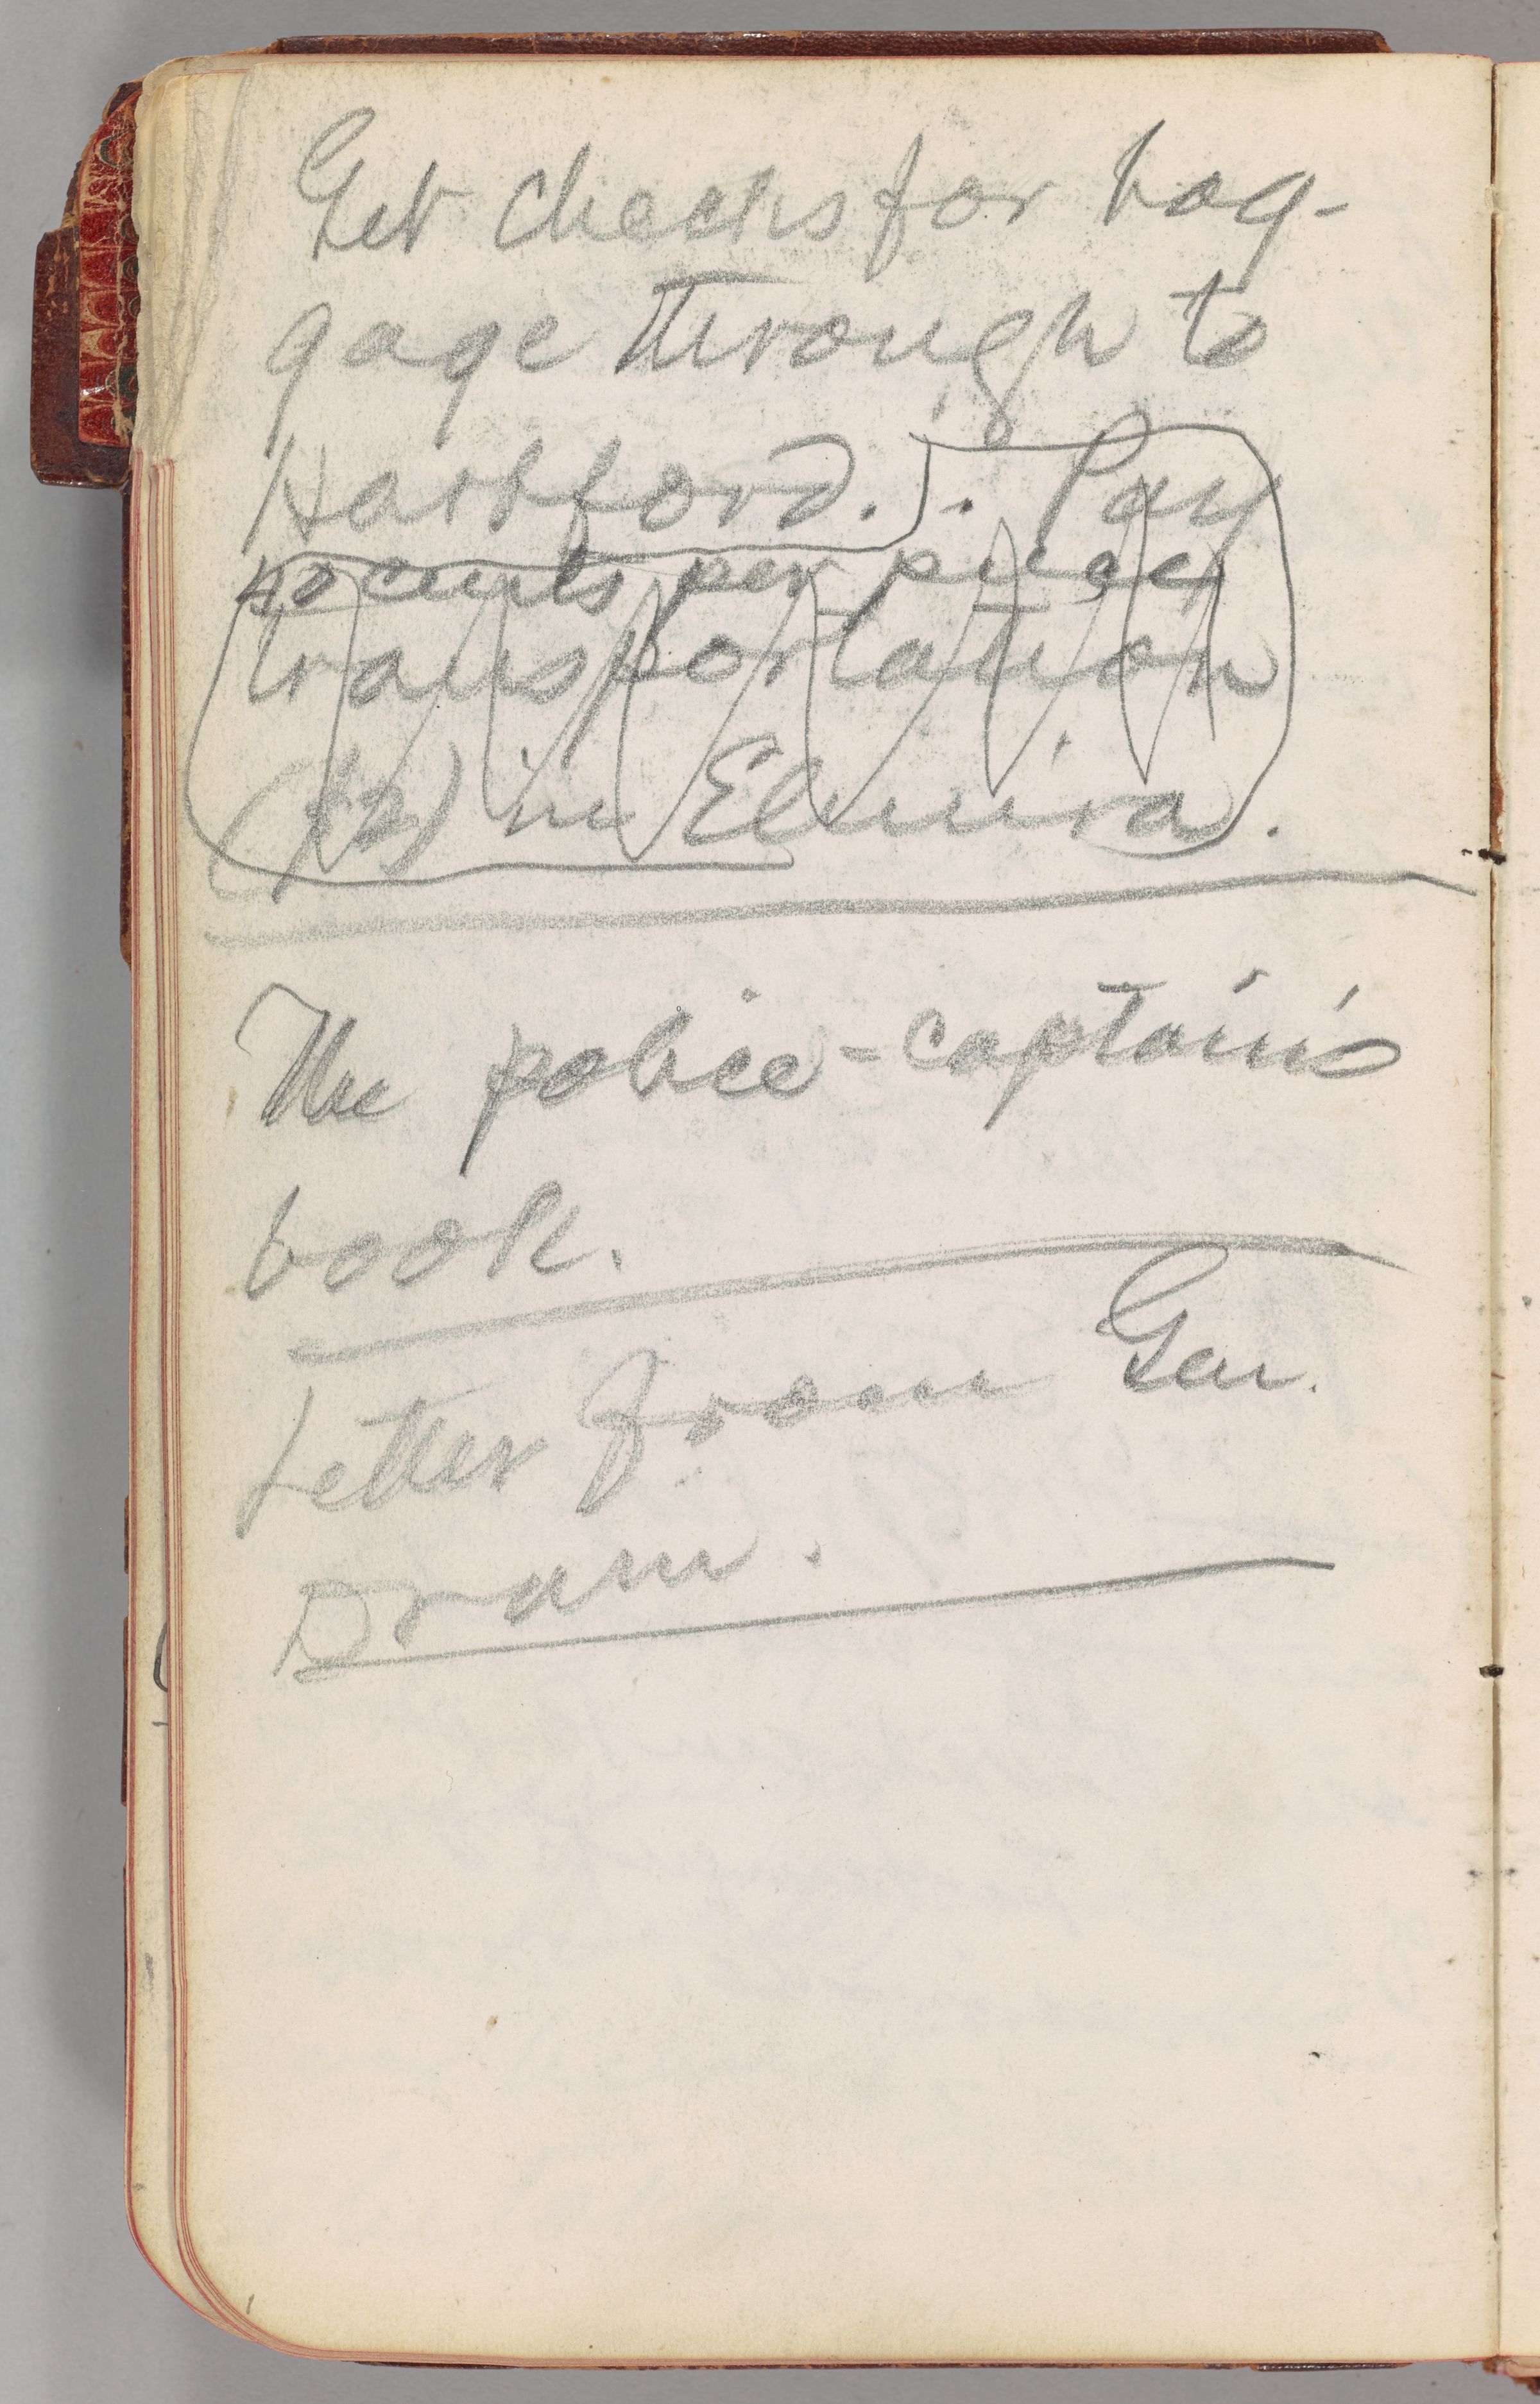 Get checks for bag-
gage through to
Hartford. Pay
cents per piece
transportation
in Elmira.
The police-captain's
book.
Letter from Gen.
Drum.